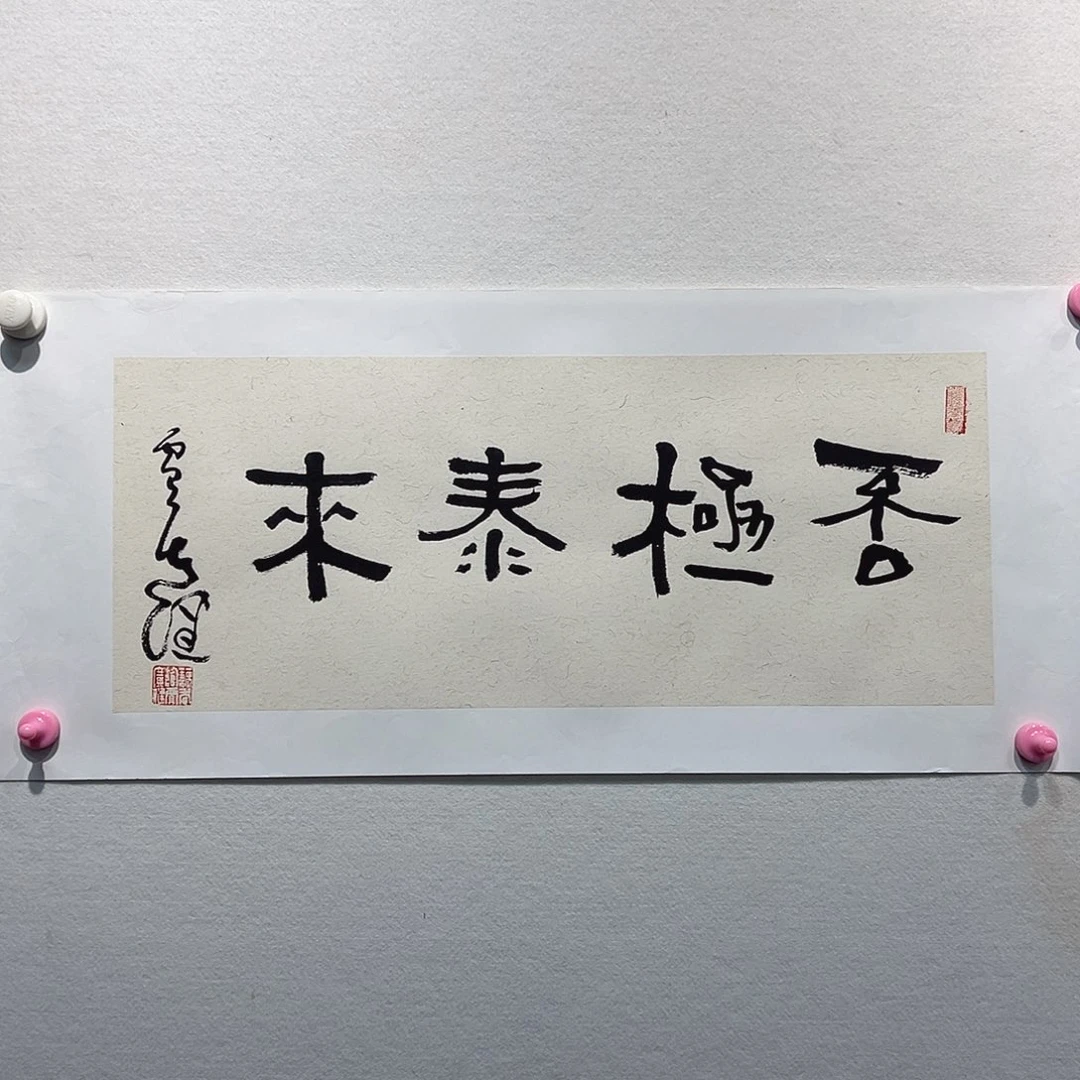 否極泰來